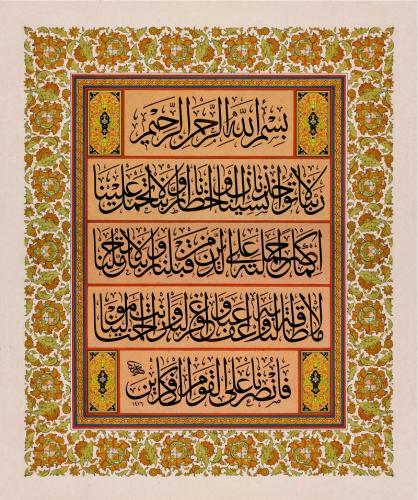 بِسْمِ اللهِ الرَّحْمٰنِ الرَّحِيمِ
رَبَّنَا لَا تُؤَاخِذْنَا إِنْ نَسِينَا أَوْ أَخْطَأْنَا رَبَّنَا وَلَا تَحْمِلْ عَلَيْنَا
إِصْرًا كَمَا حَمَلْتَهُ عَلَى الَّذِينَ مِنْ قَبْلِنَا رَبَّنَا وَلَا تُحَمِّلْنَا
مَا لَا طَاقَةَ لَنَا بِهِ وَاعْفُ عَنَّا وَاغْفِرْ لَنَا وَارْحَمْنَا أَنْتَ مَوْلٰينَا
فَانْصُرْنَا عَلَى الْقَوْمِ الْكَافِرِينَ